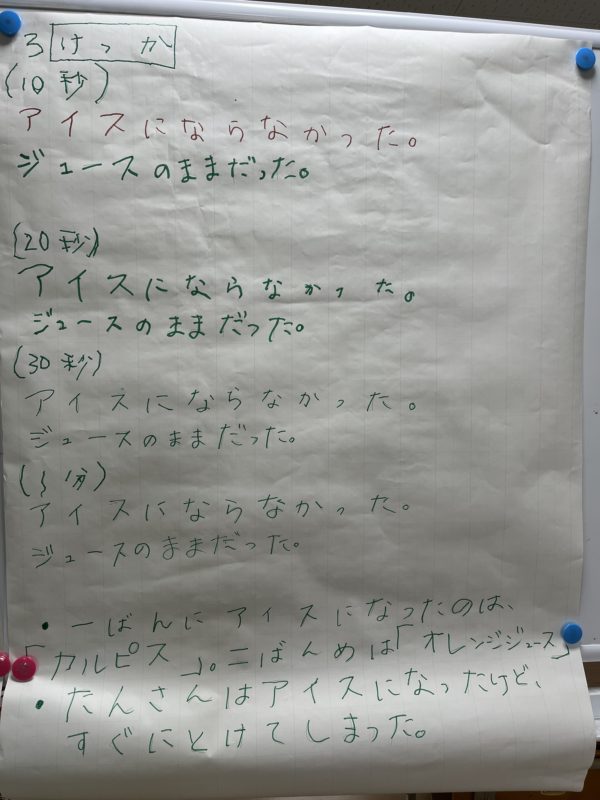 3 けっか
(10秒)
アイスにならなかった。
ジュースのままだった。
(20秒)
アイスにならなかった。
ジュースのままだった。
(30秒)
アイスにならなかった。
ジュースのままだった。
(1分)
アイスにならなかった。
ジュースのままだった。
・一ばんにアイスになったのは、
「カルピス」。二ばんめは「オレンジジュース」
・たんさんはアイスになったけど、
すぐにとけてしまった。